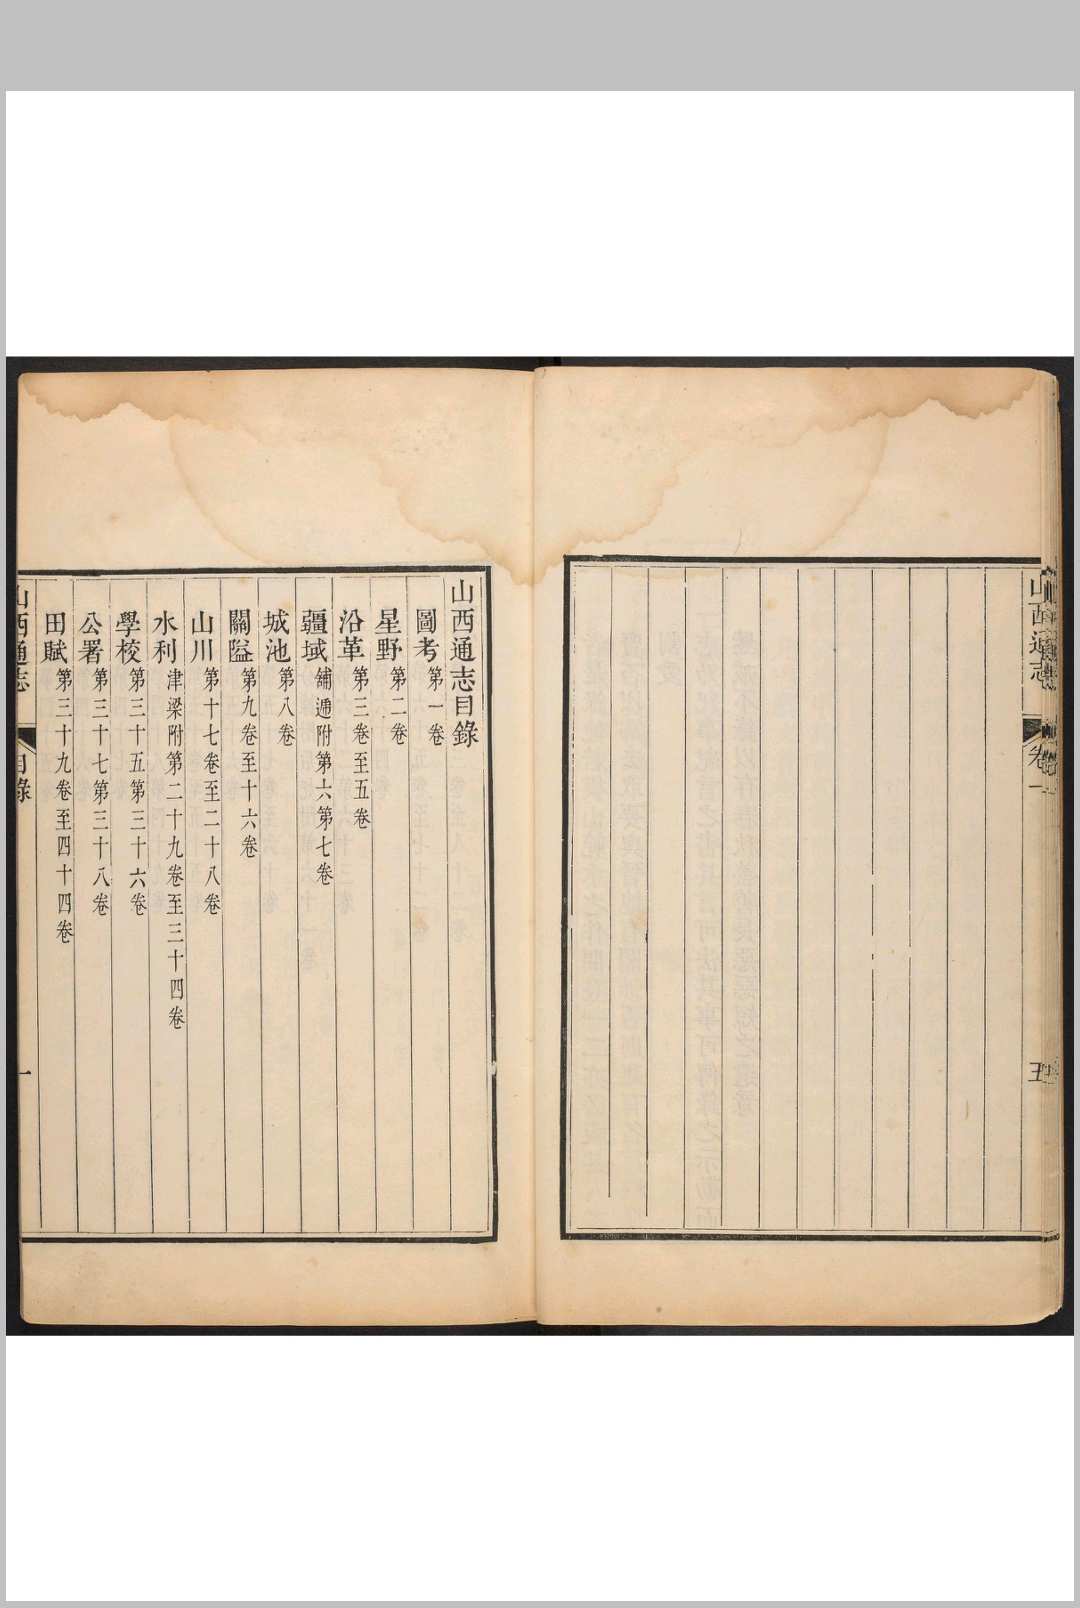 山西通志
卷一
五
山西通志目錄
圖考第一卷
星野第二卷
沿革第三卷至五卷
疆域鋪遞附第六第七卷
城池第八卷
關隘第九卷至十六卷
山川第十七卷至二十八卷
水利津梁附第二十九卷至三十四卷
學校第三十五第三十六卷
公署第三十七第三十八卷
田賦第三十九卷至四十四卷
山西通志
目錄
一